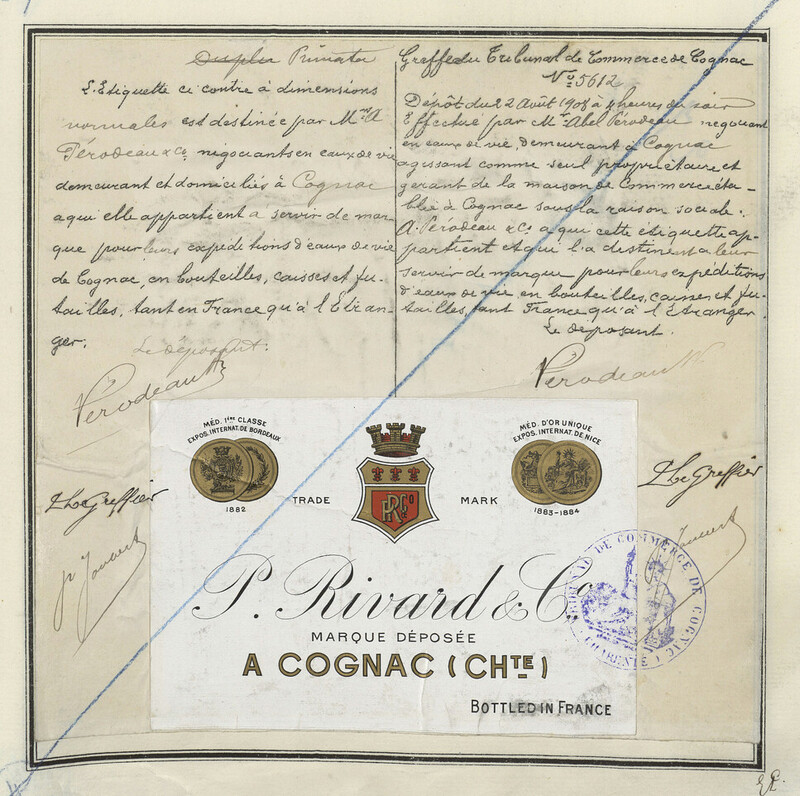 Duplu Primata
L'Etiquette ci contre à dimensions
normales est destinée par Mrs A
Pérodeau & Co, négociants en eaux de vie
demeurant et domiciliés à Cognac
a qui elle appartient a servir de mar-
que pour leurs expéditions d'eaux de vie
de Cognac, en bouteilles, caisses et fu-
tailles, tant en France qu'à l'Etran-
ger.
Le déposant.
Pérodeau
Greffe du Tribunal de Commerce de Cognac
No 5612
Dépôt du 22 Août 1908 à 4 heures du soir
Effectué par Mr Abel Pérodeau négociant
en eaux de vie, demeurant à Cognac
agissant comme seul propriétaire et
gérant de la maison de Commerce éta-
blie à Cognac sous la raison sociale:
A. Pérodeau & Co a qui cette etiquette ap-
partient et qui l'a destinent a leur
servir de marque pour leurs expéditions
d'eaux de vie en bouteilles, caisses et fu-
tailles, tant France qu'à l'Etranger.
Le deposant.
Pérodeau
Le Greffier
Le Greffier
MÉD. 1ère CLASSE
EXPOS. INTERNAT. DE BORDEAUX
1882
MÉD. D'OR UNIQUE
EXPOS. INTERNAT. DE NICE
1883-1884
TRADE MARK
P. Rivard & Co
MARQUE DÉPOSÉE
A COGNAC (CHTE)
BOTTLED IN FRANCE
TRIBUNAL DE COMMERCE DE COGNAC
(CHARENTE)